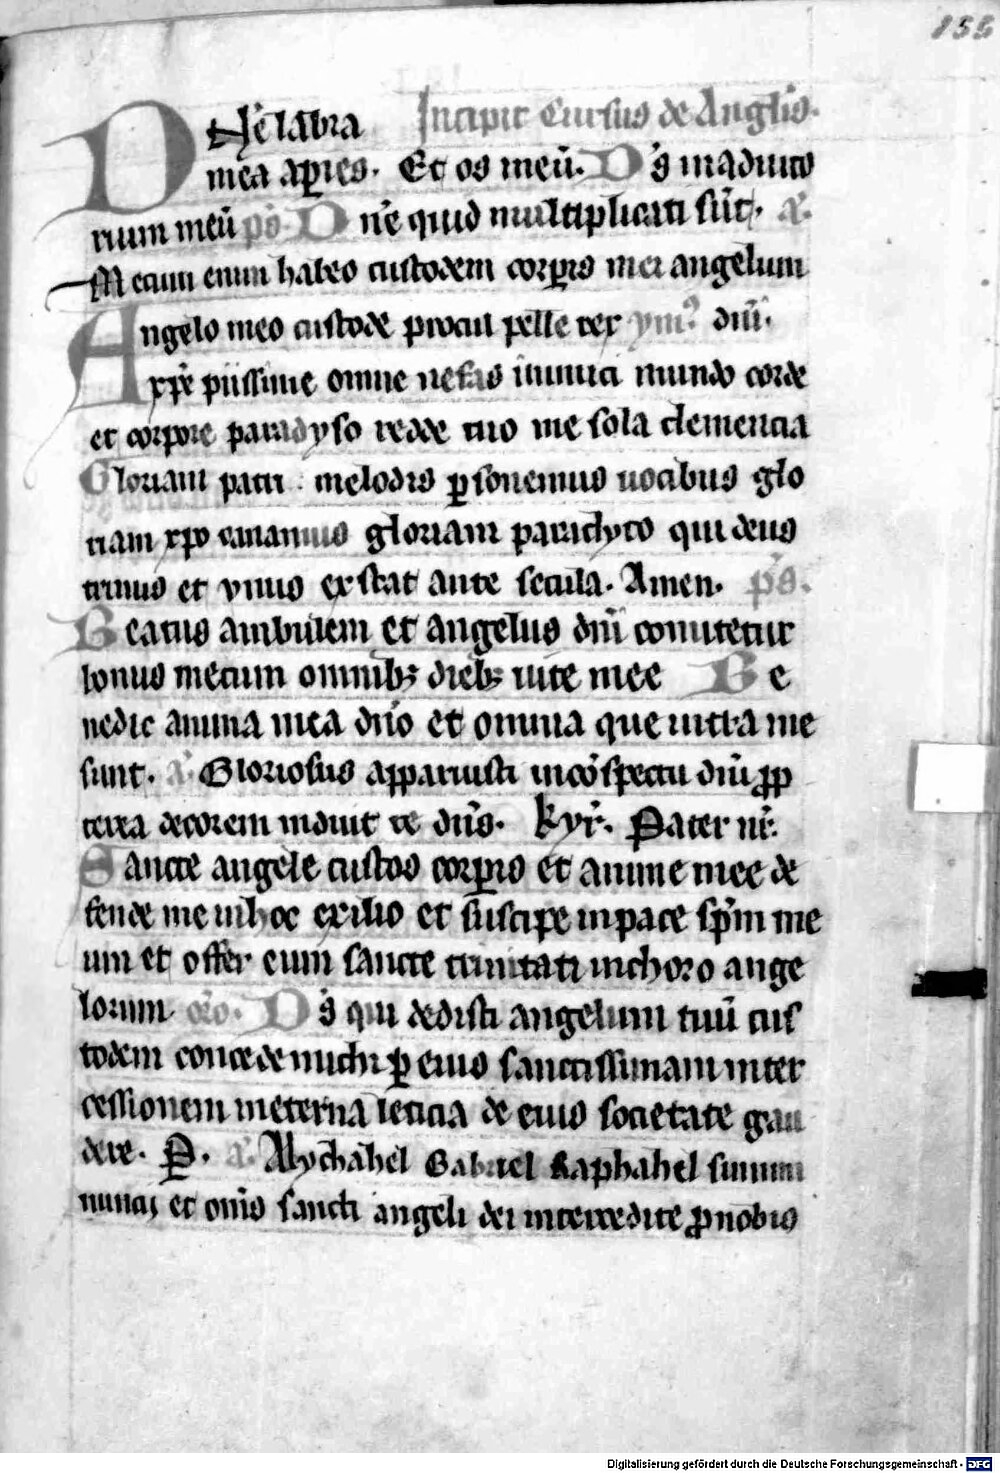 155
Dn̄e labia Incipit Cursus de Angl̄is.
mea apries. Et os meū. Ds̄ in adiuto
rium meū pō Dn̄e quid multiplicati sūt. A.
Mecum enim habeo custodem corp̄is mei angelum
Angelo meo custode procul pelle rex ym̄9 diu̅.
xp̄e piissime omne nefas inimici mundo corde
et corpore paradyso redde tuo me sola clemencia
Gloriam patri melodis p̱sonemus uocibus glo
riam xp̄o canamus gloriam paraclyto qui deus
trinus et vnus exstat ante secula. Amen. p̄s.
Beatus ambulem et angelus dn̄i comitetur
bonus mecum omnibꝫ diebꝫ uite mee Be
nedic anima mea dn̄o et omnia que intra me
sunt. A. Gloriosus apparuisti in cōspectu dn̄i ꝓp
terea decorem induit te dn̄s. kyr̄. Pater nr̄.
Sancte angele custos corp̄is et anime mee de
fende me in hoc exilio et suscipe in pace sp̄m me
um et offer eum sancte trinitati in choro ange
lorum or̄o. Ds̄ qui dedisti angelum tuū cus
todem concede michi ꝑ eius sanctissimam inter
cessionem in eterna leticia de eius societate gau
dere. P̱. A. Mychahel Gabriel Raphahel summi
nuncij et om̄s sancti angeli dei intercedite ꝓ nobis
Digitalisierung gefördert durch die Deutsche Forschungsgemeinschaft - DFG